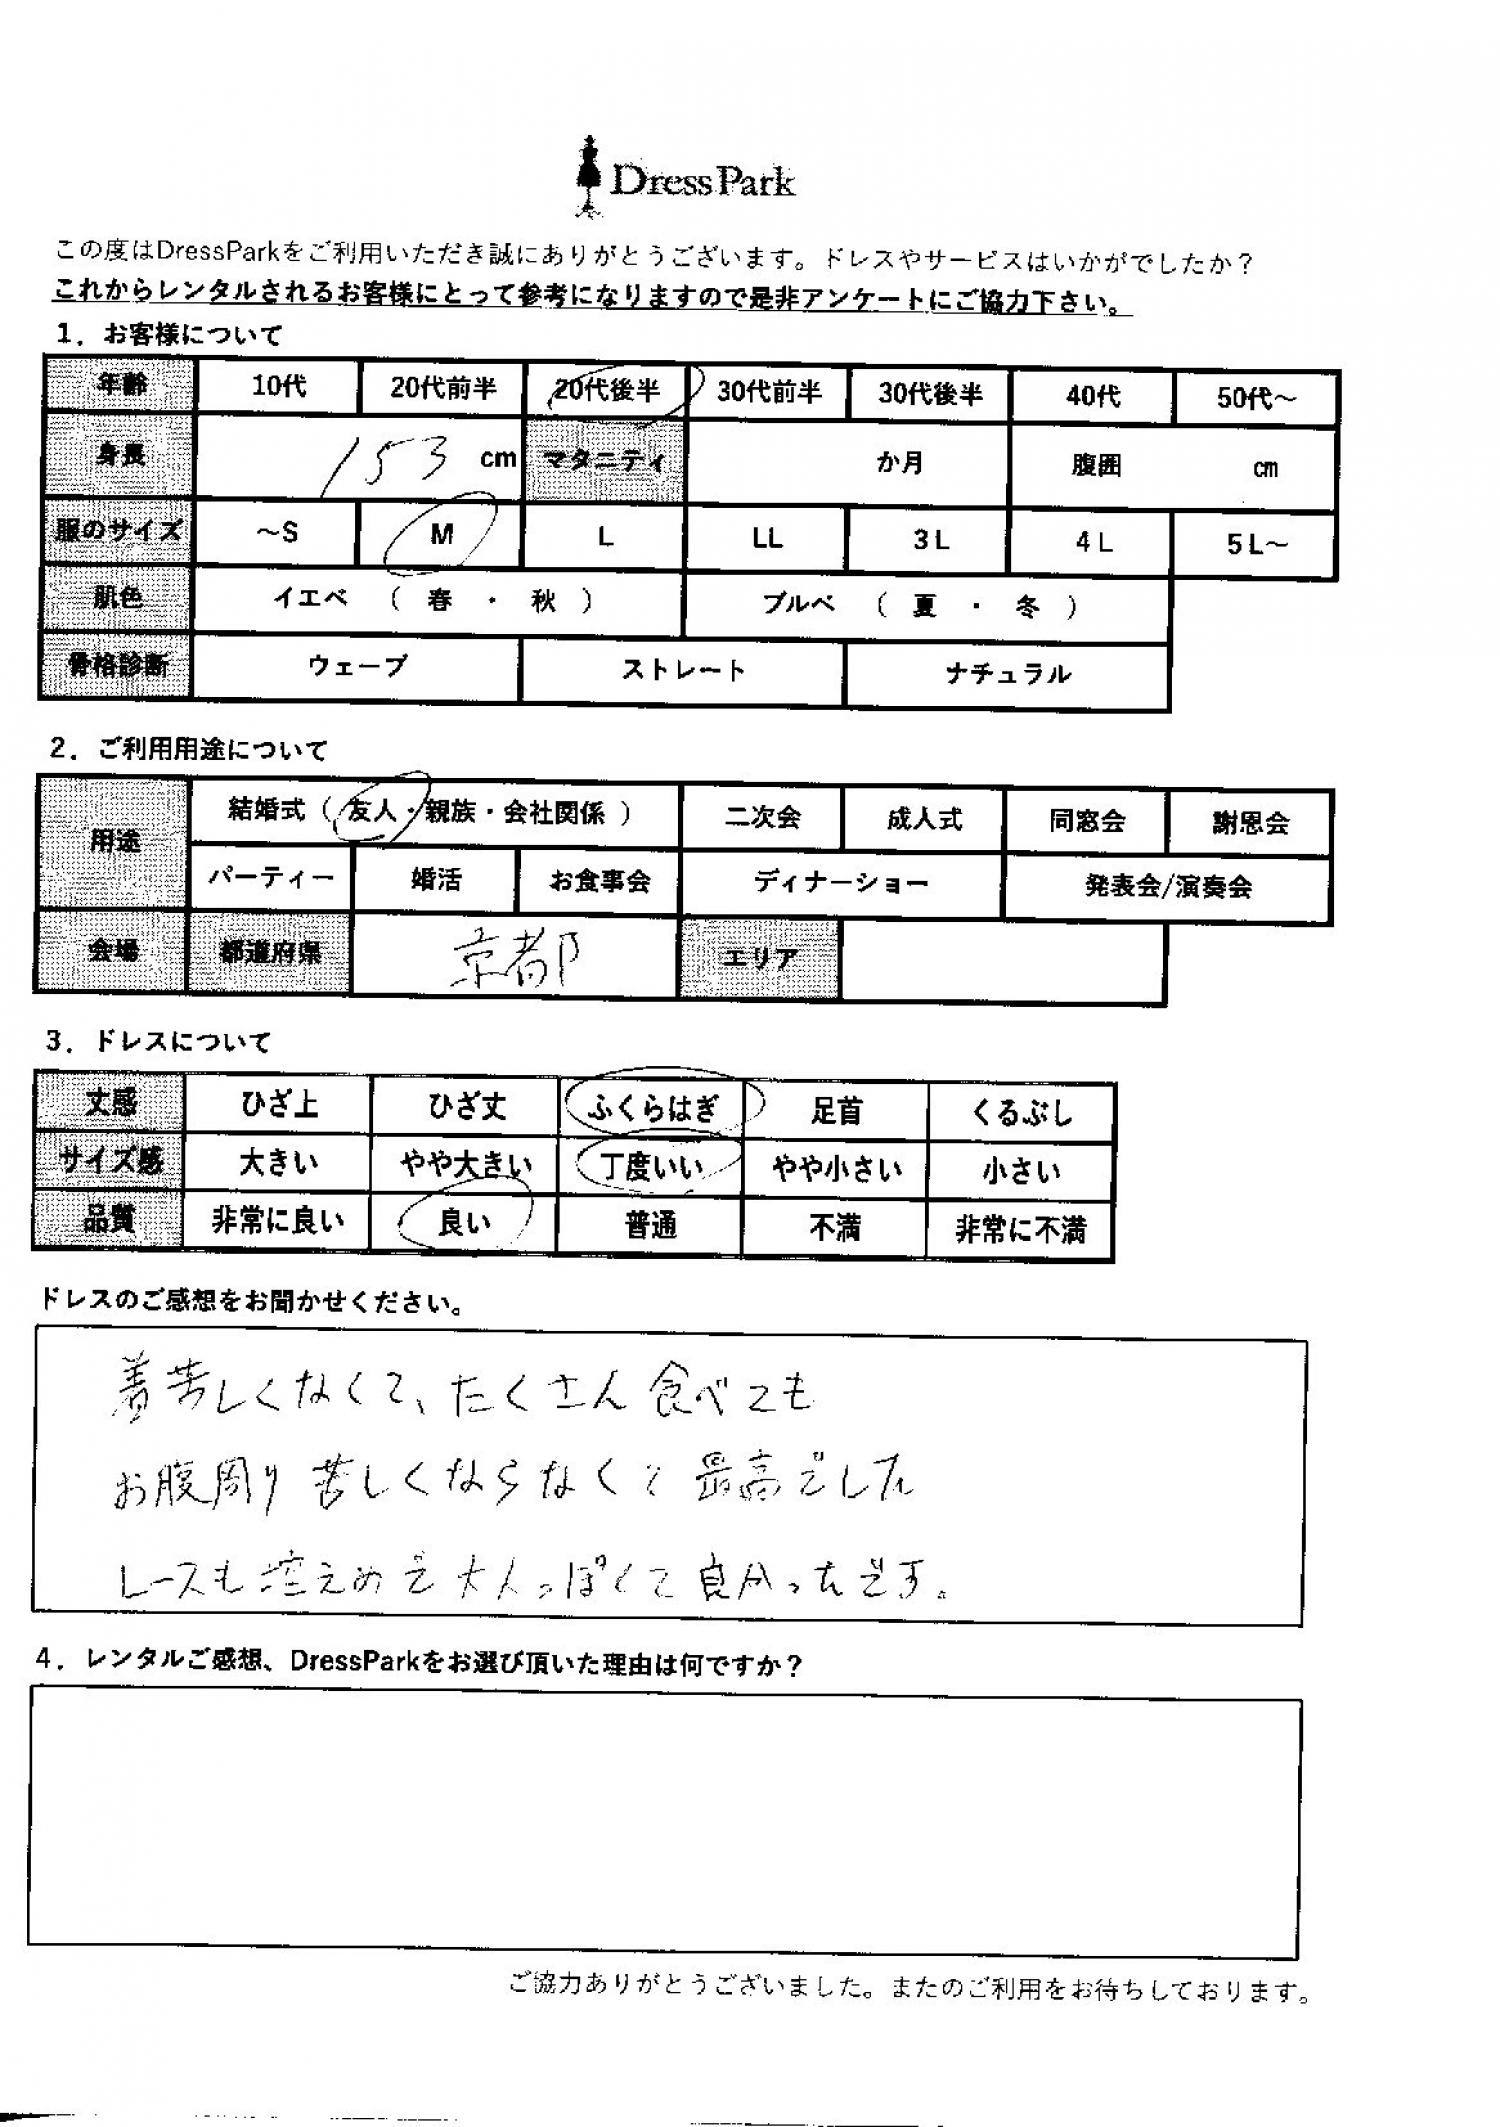 DressPark
この度はDressParkをご利用いただき誠にありがとうございます。ドレスやサービスはいかがでしたか？
これからレンタルされるお客様にとって参考になりますので是非アンケートにご協力下さい。
1．お客様について
年齢 10代 20代前半 20代後半 30代前半 30代後半 40代 50代～
身長 153 cm マタニティ か月 腹囲 cm
服のサイズ ～S M L LL 3L 4L 5L～
肌色 イエベ （ 春 ・ 秋 ） ブルベ （ 夏 ・ 冬 ）
骨格診断 ウェーブ ストレート ナチュラル
2．ご利用用途について
用途 結婚式（ 友人・親族・会社関係 ） 二次会 成人式 同窓会 謝恩会
パーティー 婚活 お食事会 ディナーショー 発表会/演奏会
会場 都道府県 京都 エリア
3．ドレスについて
丈感 ひざ上 ひざ丈 ふくらはぎ 足首 くるぶし
サイズ感 大きい やや大きい 丁度いい やや小さい 小さい
品質 非常に良い 良い 普通 不満 非常に不満
ドレスのご感想をお聞かせください。
着苦しくなくて、たくさん食べても
お腹周り苦しくならなくて最高でした
レースも控えめで大人っぽくて良かったです。
4．レンタルご感想、DressParkをお選び頂いた理由は何ですか？
ご協力ありがとうございました。またのご利用をお待ちしております。